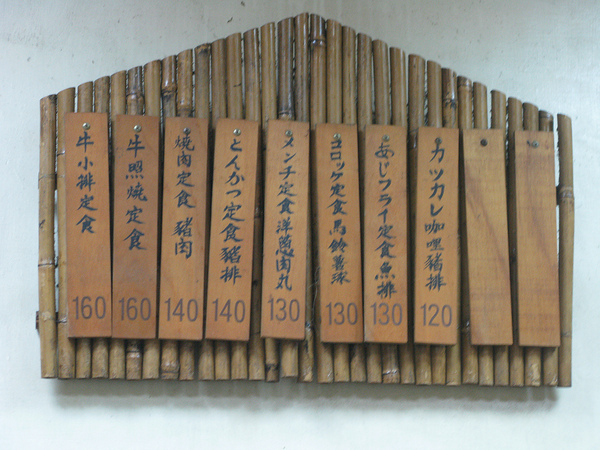 牛小排定食
160
牛照燒定食
160
焼肉定食 豬肉
140
とんかつ定食豬排
140
メンチ定食洋蔥肉丸
130
コロッケ定食馬鈴薯球
130
あじフライ定食魚排
130
カツカレ咖哩豬排
120